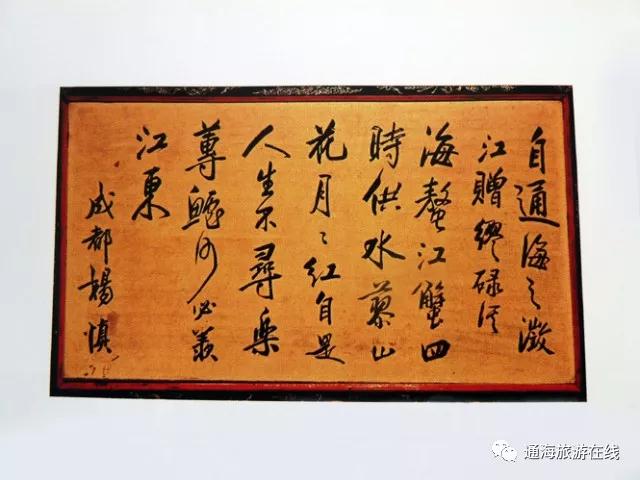 自通海之澂
江贈繆碌溪
海螯江蟹四
時供水蓼山
花月月紅自是
人生不尋樂
蓴鱸何必羨
江東
成都楊慎
通海旅游在线